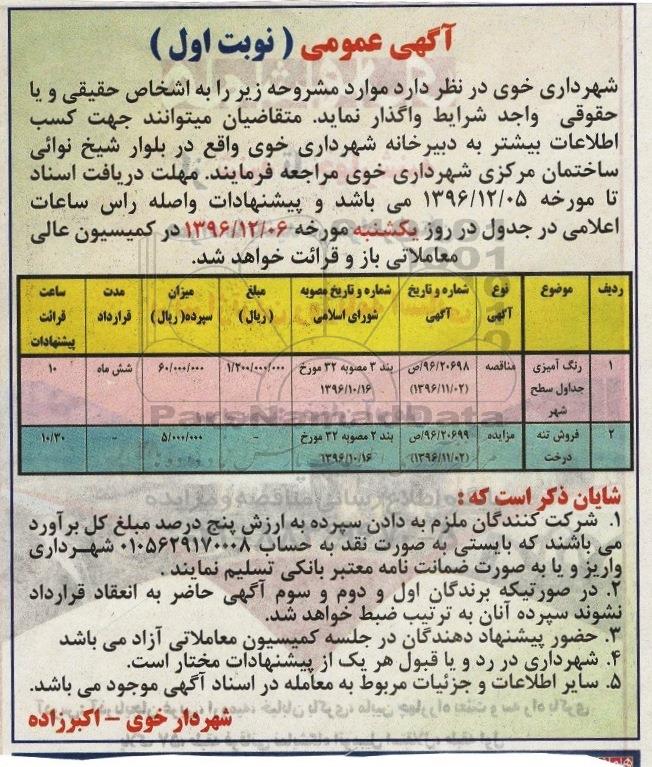 آگهی عمومی ( نوبت اول )
شهرداری خوی در نظر دارد موارد مشروحه زیر را به اشخاص حقیقی و یا
حقوقی واجد شرایط واگذار نماید. متقاضیان میتوانند جهت کسب
اطلاعات بیشتر به دبیرخانه شهرداری خوی واقع در بلوار شیخ نوائی
ساختمان مرکزی شهرداری خوی مراجعه فرمایند. مهلت دریافت اسناد
تا مورخه ۱۳۹۶/۱۲/۰۵ می باشد و پیشنهادات واصله راس ساعات
اعلامی در جدول در روز یکشنبه مورخه ۱۳۹۶/۱۲/۰۶ در کمیسیون عالی
معاملاتی باز و قرائت خواهد شد.
ردیف موضوع نوع آگهی شماره و تاریخ آگهی شماره و تاریخ مصوبه شورای اسلامی مبلغ ( ریال ) میزان سپرده( ریال ) مدت قرارداد ساعت قرائت پیشنهادات
۱ رنگ آمیزی جداول سطح شهر مناقصه ۹۶/۲۰۶۹۸/ص (۱۳۹۶/۱۱/۰۲) بند ۳ مصوبه ۳۲ مورخ ۱۳۹۶/۱۰/۱۶ ۱/۲۰۰/۰۰۰/۰۰۰ ۶۰/۰۰۰/۰۰۰ شش ماه ۱۰
۲ فروش تنه درخت مزایده ۹۶/۲۰۶۹۹/ص (۱۳۹۶/۱۱/۰۲) بند ۲ مصوبه ۳۲ مورخ ۱۳۹۶/۱۰/۱۶ - ۵/۰۰۰/۰۰۰ - ۱۰/۳۰
ParsNamadData
شایان ذکر است که :
۱. شرکت کنندگان ملزم به دادن سپرده به ارزش پنج درصد مبلغ کل برآورد
می باشند که بایستی به صورت نقد به حساب ۰۱۰۵۶۲۹۱۷۰۰۰۸ شهرداری
واریز و یا به صورت ضمانت نامه معتبر بانکی تسلیم نمایند .
۲. در صورتیکه برندگان اول و دوم و سوم آگهی حاضر به انعقاد قرارداد
نشوند سپرده آنان به ترتیب ضبط خواهد شد.
۳. حضور پیشنهاد دهندگان در جلسه کمیسیون معاملاتی آزاد می باشد
۴. شهرداری در رد و یا قبول هر یک از پیشنهادات مختار است.
۵. سایر اطلاعات و جزئیات مربوط به معامله در اسناد آگهی موجود می باشد.
شهردار خوی – اکبرزاده